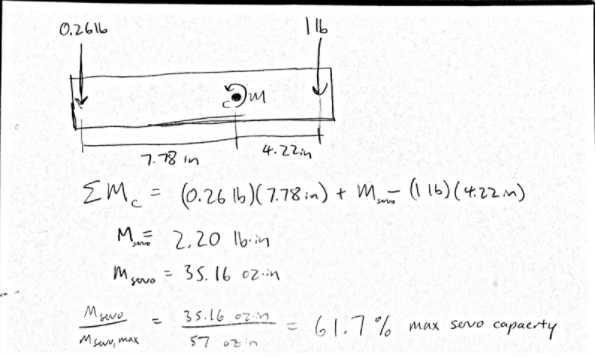 0.26 lb
1 lb
C
M
7.78 in
4.22in
ΣM_c = (0.26 lb)(7.78in) + M_servo - (1 lb)(4.22 in)
M_servo = 2.20 lb·in
M_servo = 35.16 oz·in
M_servo / M_servo,max = 35.16 oz·in / 57 oz·in = 61.7% max servo capacity